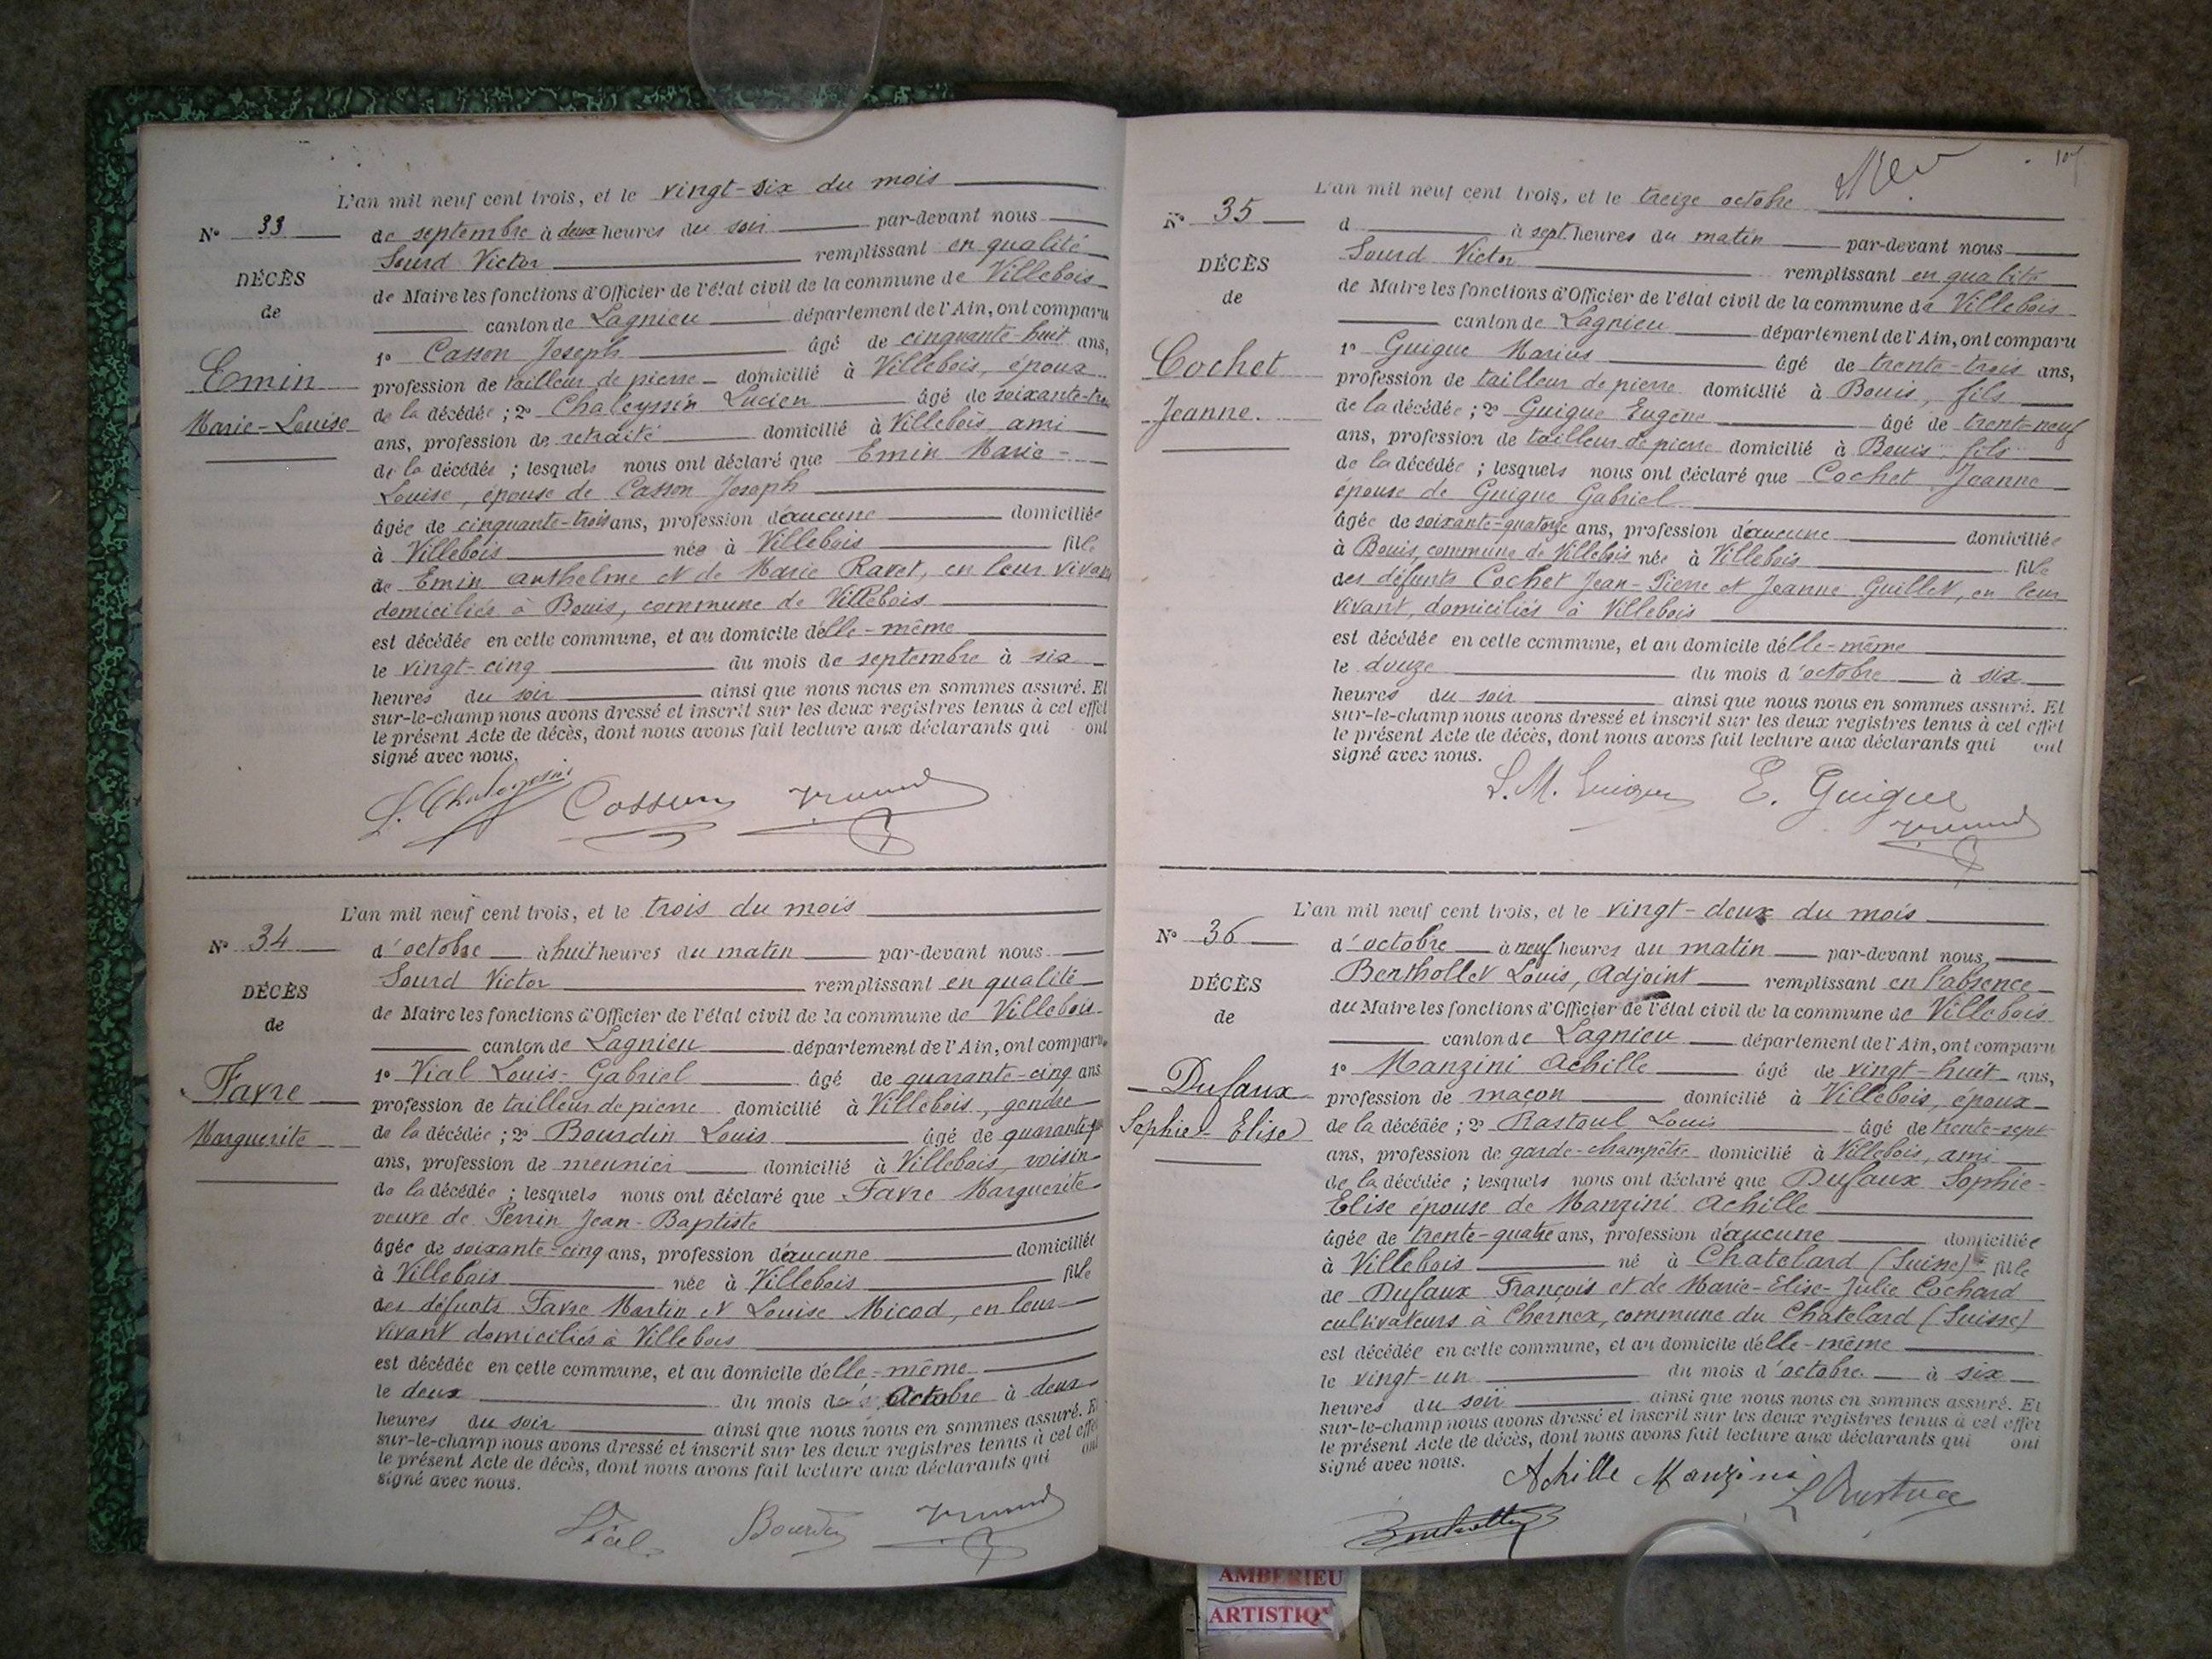 L'an mil neuf cent trois, et le vingt-six du mois
N° 33
de septembre à deux heures du soir par-devant nous
Sourd Victor remplissant en qualité
DÉCÈS
de Maire les fonctions d'Officier de l'état civil de la commune de Villebois
de
canton de Lagnieu département de l'Ain, ont comparu
1° Casson Joseph âgé de cinquante-huit ans,
Emin
profession de tailleur de pierre domicilié à Villebois, époux
Marie-Louise
de la décédée ; 2° Chaleyssin Lucien âgé de soixante-
ans, profession de retraité domicilié à Villebois ami
de la décédée ; lesquels nous ont déclaré que Emin Marie-
Louise, épouse de Casson Joseph
âgée de cinquante-trois ans, profession d'aucune domiciliée
à Villebois née à Villebois fille
de Emin anthelme et de Marie Ravet, en leur vivant
domiciliés à Bouis, commune de Villebois
est décédée en cette commune, et au domicile d'elle-même
le vingt-cinq du mois de septembre à six
heures du soir ainsi que nous nous en sommes assuré. Et
sur-le-champ nous avons dressé et inscrit sur les deux registres tenus à cet effet
le présent Acte de décès, dont nous avons fait lecture aux déclarants qui ont
signé avec nous.
L. Chaleyssin Casson
L'an mil neuf cent trois, et le trois du mois
N° 34
d'octobre à huit heures du matin par-devant nous
Sourd Victor remplissant en qualité
DÉCÈS
de Maire les fonctions d'Officier de l'état civil de la commune de Villebois
de
canton de Lagnieu département de l'Ain, ont comparu
1° Vial Louis-Gabriel âgé de quarante-cinq ans
Favre
profession de tailleur de pierre domicilié à Villebois, gendre
Marguerite
de la décédée ; 2° Bourdin Louis âgé de quarante-
ans, profession de meunier domicilié à Villebois, voisin
de la décédée ; lesquels nous ont déclaré que Favre Marguerite
veuve de Perrin Jean-Baptiste
âgée de soixante-cinq ans, profession d'aucune domiciliée
à Villebois née à Villebois fille
des défunts Favre Martin et Louise Micod, en leur
vivant domiciliés à Villebois
est décédée en cette commune, et au domicile d'elle-même
le deux du mois d'octobre à deux
heures du soir ainsi que nous nous en sommes assuré. Et
sur-le-champ nous avons dressé et inscrit sur les deux registres tenus à cet effet
le présent Acte de décès, dont nous avons fait lecture aux déclarants qui ont
signé avec nous.
Vial Bourdin
L'an mil neuf cent trois, et le treize octobre
N° 35
d à sept heures du matin par-devant nous
Sourd Victor remplissant en qualité
DÉCÈS
de Maire les fonctions d'Officier de l'état civil de la commune de Villebois
de
canton de Lagnieu département de l'Ain, ont comparu
1° Guigue Marius âgé de trente-trois ans,
Cochet
profession de tailleur de pierre domicilié à Bouis, fils
Jeanne.
de la décédée ; 2° Guigue Eugène âgé de trent-neuf
ans, profession de tailleur de pierre domicilié à Bouis fils
de la décédée ; lesquels nous ont déclaré que Cochet Jeanne
épouse de Guigue Gabriel
âgée de soixante-quatorze ans, profession d'aucune domiciliée
à Bouis, commune de Villebois née à Villebois fille
des défunts Cochet Jean-Pierre et Jeanne Guillet, en leur
vivant, domiciliés à Villebois
est décédée en cette commune, et au domicile d'elle-même
le douze du mois d'octobre à six
heures du soir ainsi que nous nous en sommes assuré. Et
sur-le-champ nous avons dressé et inscrit sur les deux registres tenus à cet effet
le présent Acte de décès, dont nous avons fait lecture aux déclarants qui ont
signé avec nous.
L. M. Guigue E. Guigue
L'an mil neuf cent trois, et le vingt-deux du mois
N° 36
d'octobre à neuf heures du matin par-devant nous,
Berthollet Louis, Adjoint remplissant en l'absence
DÉCÈS
du Maire les fonctions d'Officier de l'état civil de la commune de Villebois
de
canton de Lagnieu département de l'Ain, ont comparu
1° Manzini Achille âgé de vingt-huit ans,
Dufaux
profession de maçon domicilié à Villebois, époux
Sophie-Elise
de la décédée ; 2° Rastoul Louis âgé de trente-sept
ans, profession de garde-champêtre domicilié à Villebois, ami
de la décédée ; lesquels nous ont déclaré que Dufaux Sophie-
Elise épouse de Manzini Achille
âgée de trente-quatre ans, profession d'aucune domiciliée
à Villebois né à Chatelard (Suisse) fille
de Dufaux François et de Marie-Elise-Julie Cochard
cultivateurs à Chernex, commune du Chatelard (Suisse)
est décédée en cette commune, et au domicile d'elle-même
le vingt-un du mois d'octobre à six
heures du soir ainsi que nous nous en sommes assuré. Et
sur-le-champ nous avons dressé et inscrit sur les deux registres tenus à cet effet
le présent Acte de décès, dont nous avons fait lecture aux déclarants qui ont
signé avec nous.
Achille Manzini
AMBERIEU
ARTISTIQ